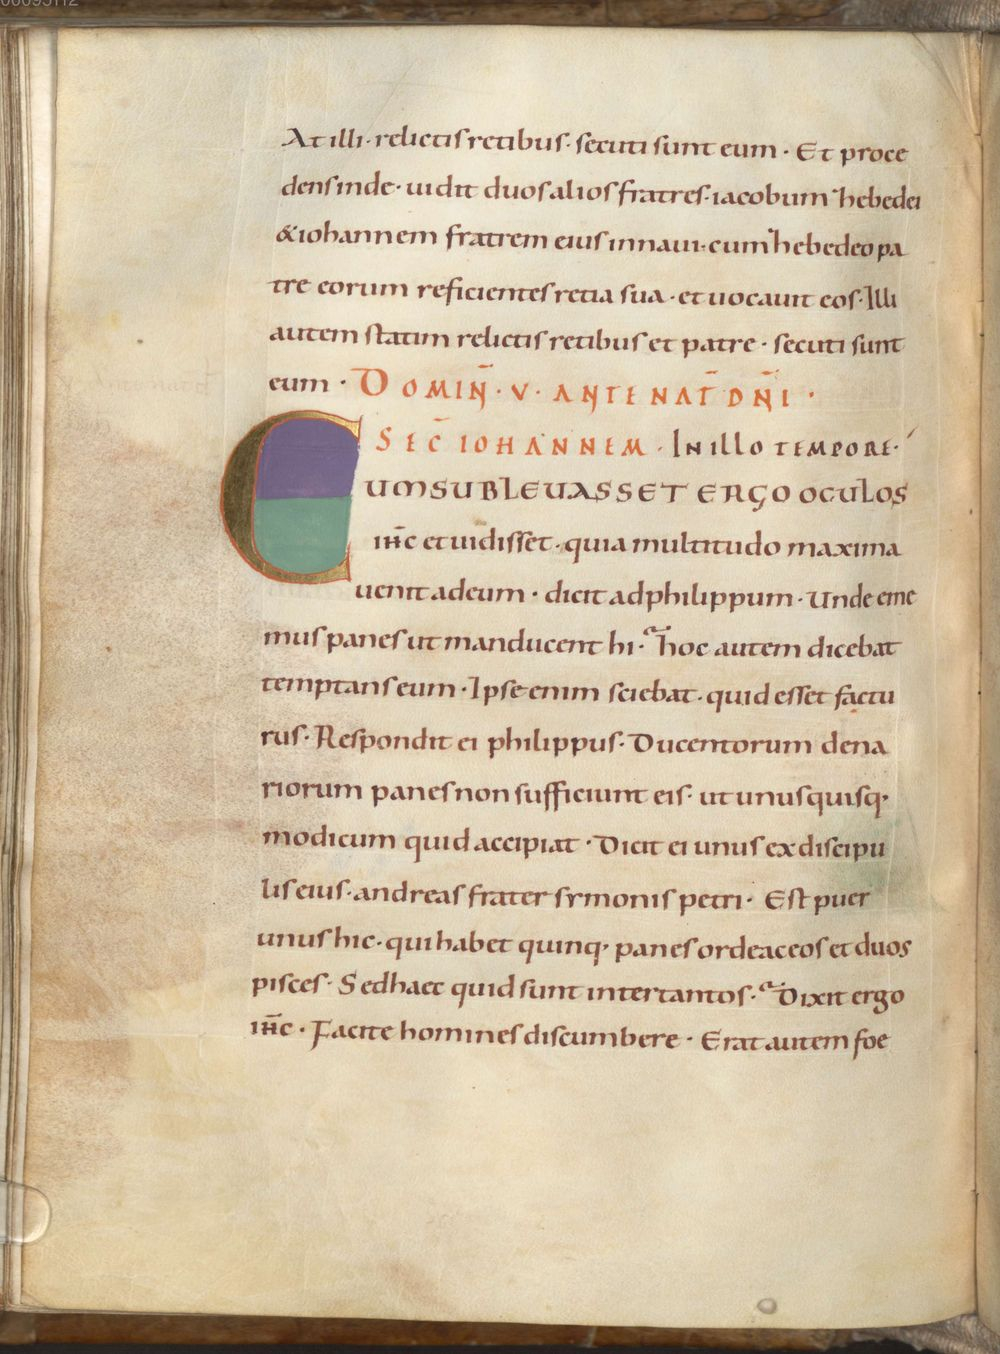 At illi · relictis retibus · secuti sunt eum · Et proce
dens inde · uidit duos alios fratres · iacobum hebedei
& iohannem fratrem eius in naui · cum hebedeo pa
tre eorum reficientes retia sua · et uocauit eos · Illi
autem statim relictis retibus et patre · secuti sunt
eum · DOMIN̄ · V · ANTE NAT̄ DN̄I ·
SEC̄ IOHANNEM · IN ILLO TEMPORE ·
CUM SUBLEUASSET ERGO OCULOS
ih̄c et uidisset · quia multitudo maxima
uenit ad eum · dicit ad philippum · Unde eme
mus panes ut manducent hi · hoc autem dicebat
temptans eum · Ipse enim sciebat · quid esset factu
rus · Respondit ei philippus · Ducentorum dena
riorum panes non sufficiunt eis · ut unusquisq·
modicum quid accipiat · Dicit ei unus ex discipu
lis eius · andreas frater symonis petri · Est puer
unus hic · qui habet quinq· panes ordeaceos et duos
pisces · Sed haec quid sunt inter tantos · Dixit ergo
ih̄c · Facite homines discumbere · Erat autem foe